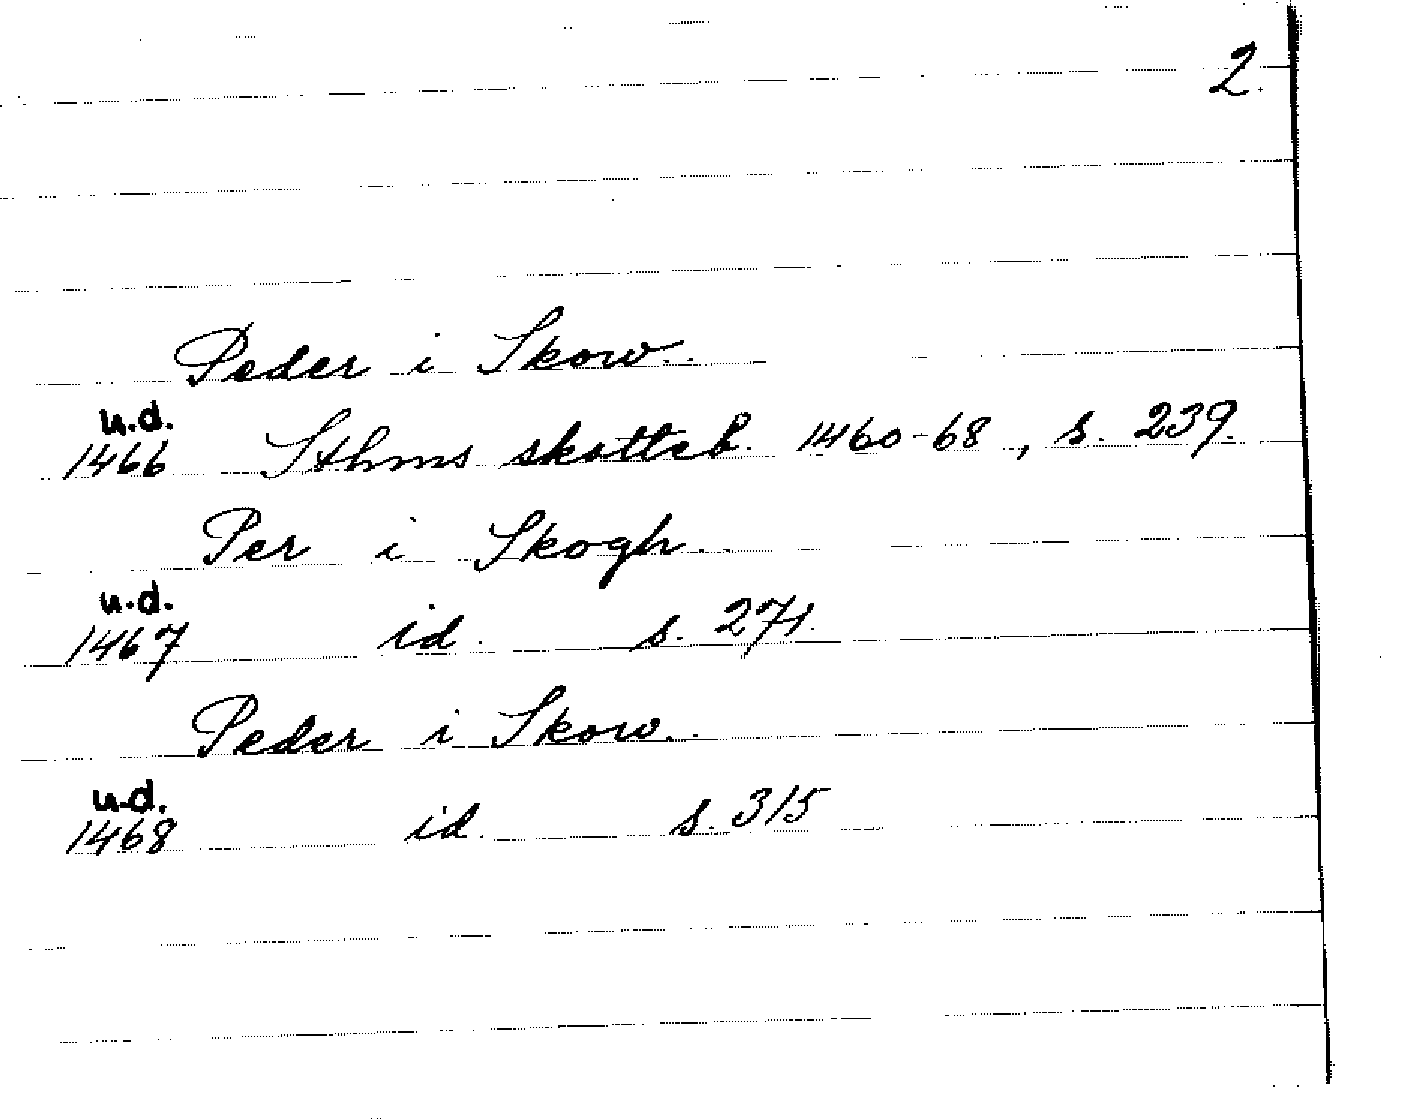 2.
Peder i Skow.
u.d.
1466 Sthms skotteb. 1460-68, s. 239.
Per i Skogh.
u.d.
1467 id. s. 271.
Peder i Skow.
u.d.
1468 id. s. 315